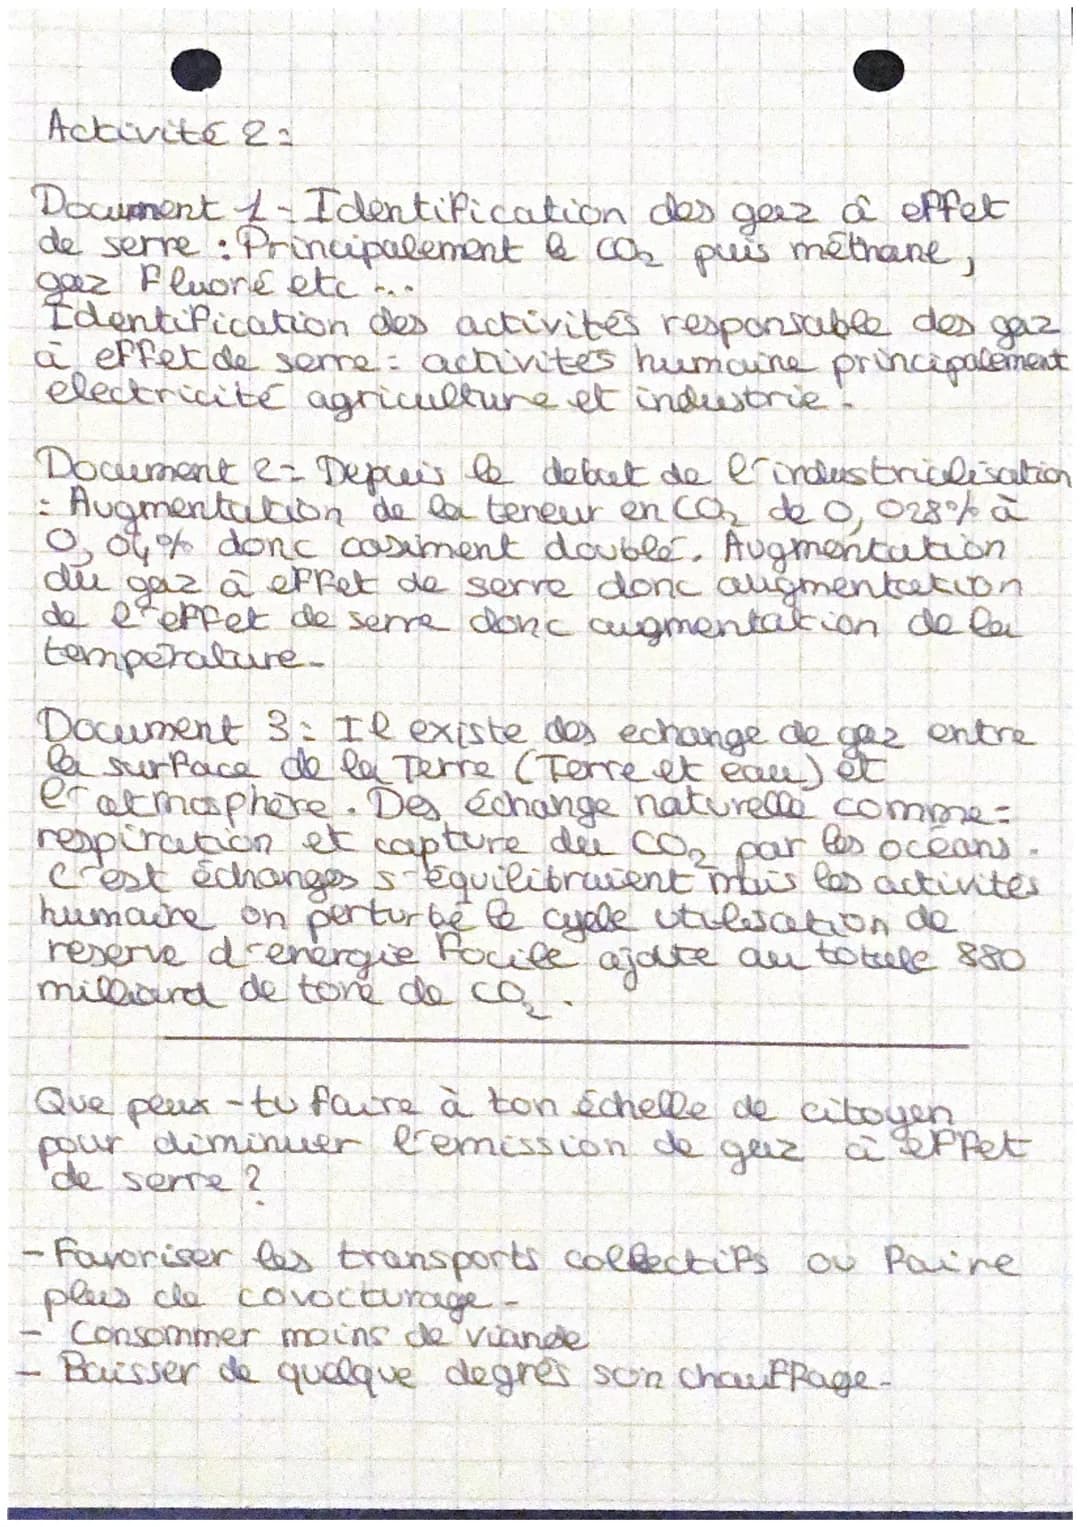 Activité 2:
Document 1 - Identification des gaz à effet
de serre : Principalement le CO2 puis méthane,
gaz Fluoré etc ...
Identification des activités responsable des gaz
à effet de serre : activités humaine principalement
electricité agriculture et industrie.
Document 2 : Depuis le debut de l'industrialisation
: Augmentation de la teneur en CO2 de 0,028% à
0,04% donc casiment doublé. Augmentation
du gaz à effet de serre donc augmentation
de l'effet de serre donc augmentation de la
température.
Document 3 : Il existe des echange de gaz entre
la surface de la Terre (Terre et eau) et
l'atmosphère. Des échange naturelle comme :
respiration et capture du CO2 par les océans.
C'est échanges s'équilibraient mais les activités
humaine on perturbé le cycle utilisation de
reserve d'energie Focile ajoute au totale 880
milliard de tone de CO2.
Que peux-tu faire à ton échelle de citoyen
pour diminuer l'emission de gaz à effet
de serre ?
- Favoriser les transports collectifs ou faire
plus de covocturage.
- Consommer moins de viande
- Baisser de quelque degrés son chauffage.